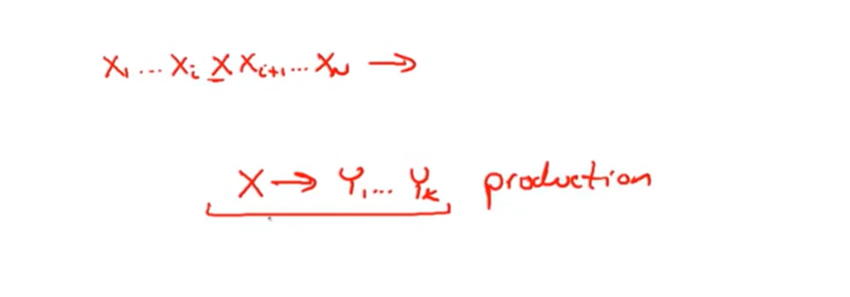 X₁ ... Xᵢ X Xᵢ₊₁ ... X_N →
X → Y₁ ... Yₖ production